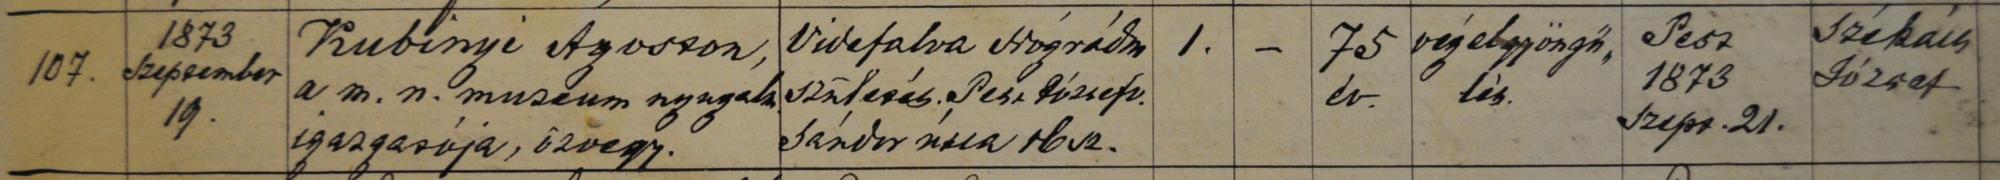 107.
1873
Szeptember
19.
Kubinyi Agoston,
a m. n. muzeum nyugalm.
igazgatója, özvegy.
Videfalva Nógrádm
születés. Pest Józsefv.
Sándor útca sz.
1.
–
75
év.
végelgyöngü„
lés.
Pest
1873
Szept. 21.
Székács
József